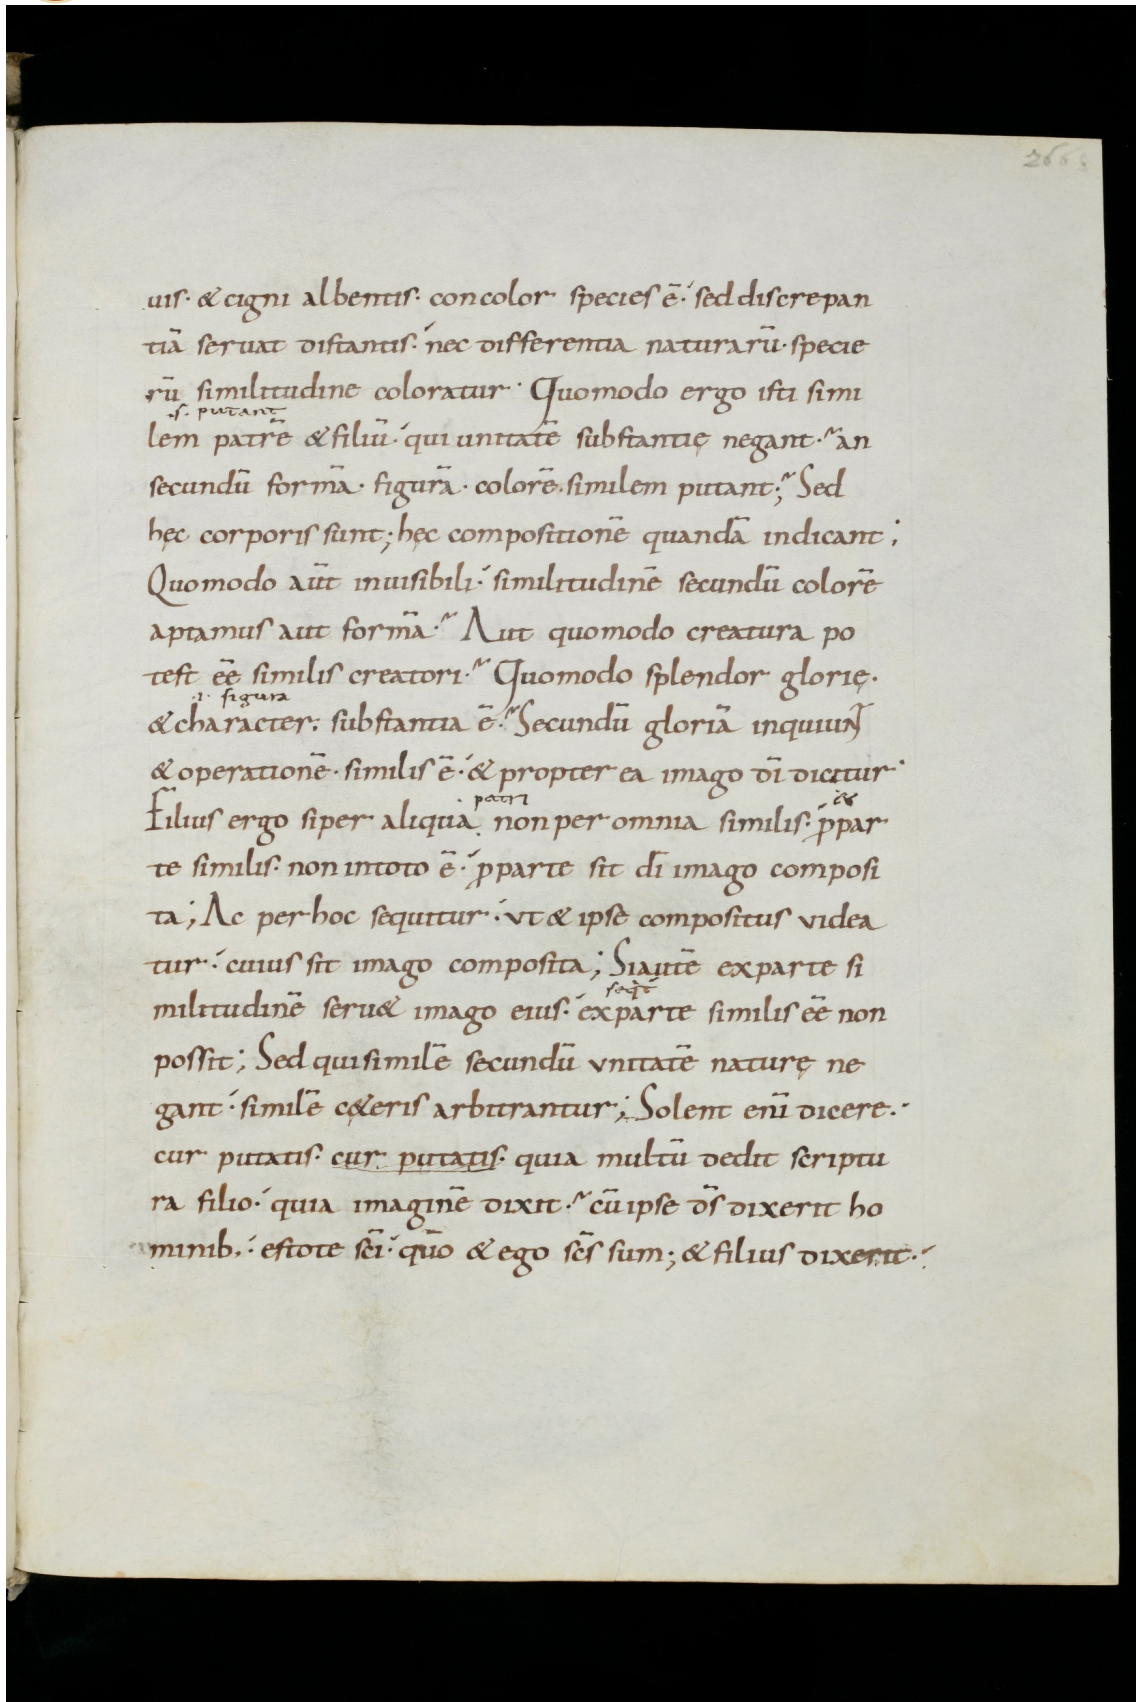 266
uis· & cigni albentis· concolor species ē·́ sed discrepan
tiā seruat distantis·́ nec differentia naturarū· specie
rū similitudine coloratur· Quomodo ergo isti simi
·s· putant
lem patrē & filiū·́ qui unitatē substantię negant·~ an
secundū formā· figurā· colorē· similem putant;~ Sed
hęc corporis sunt; hęc compositionē quandā indicant;
Quomodo aūt inuisibili·́ similitudinē secundū colorē
aptamus aut formā·~ Aut quomodo creatura po
test ēe similis creatori·~ Quomodo splendor glorię·
·i· figura
& character: substantia ē·~ Secundū gloriā inquiuNT
& operationē· similis ē·́ & propter ea imago dī dicitur·
patri &
Filius ergo siper aliqua non per omnia similis·́ p̄par
te similis· non intoto ē·́ p̄parte sit dī imago composi
ta; Ac per hoc sequitur·́ vt & ipse compositus videa
tur·́ cuius sit imago composita; Siautē exparte si
seq̄t
militudinē seru& imago eius·́ exparte similis ēe non
possit; Sed quisimilē secundū vnitatē naturę ne
gant·́ similē cę&eris arbitrantur; Solent enī dicere·́
cur putatis· cur putatis· quia multū dedit scriptu
ra filio·́ quia imaginē dixit·~ cū ipse d̄s dixerit ho
minib,·́ estote sc̄i·́ qūo & ego sc̄s sum; & filius dixerit·́